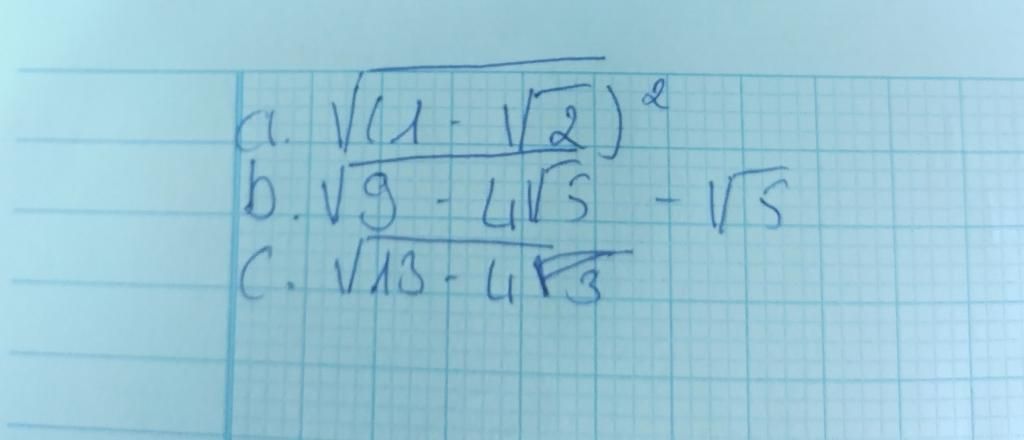 a. √(1 - √2)²
b. √9 - 4√5 - √5
c. √13 - 4√3